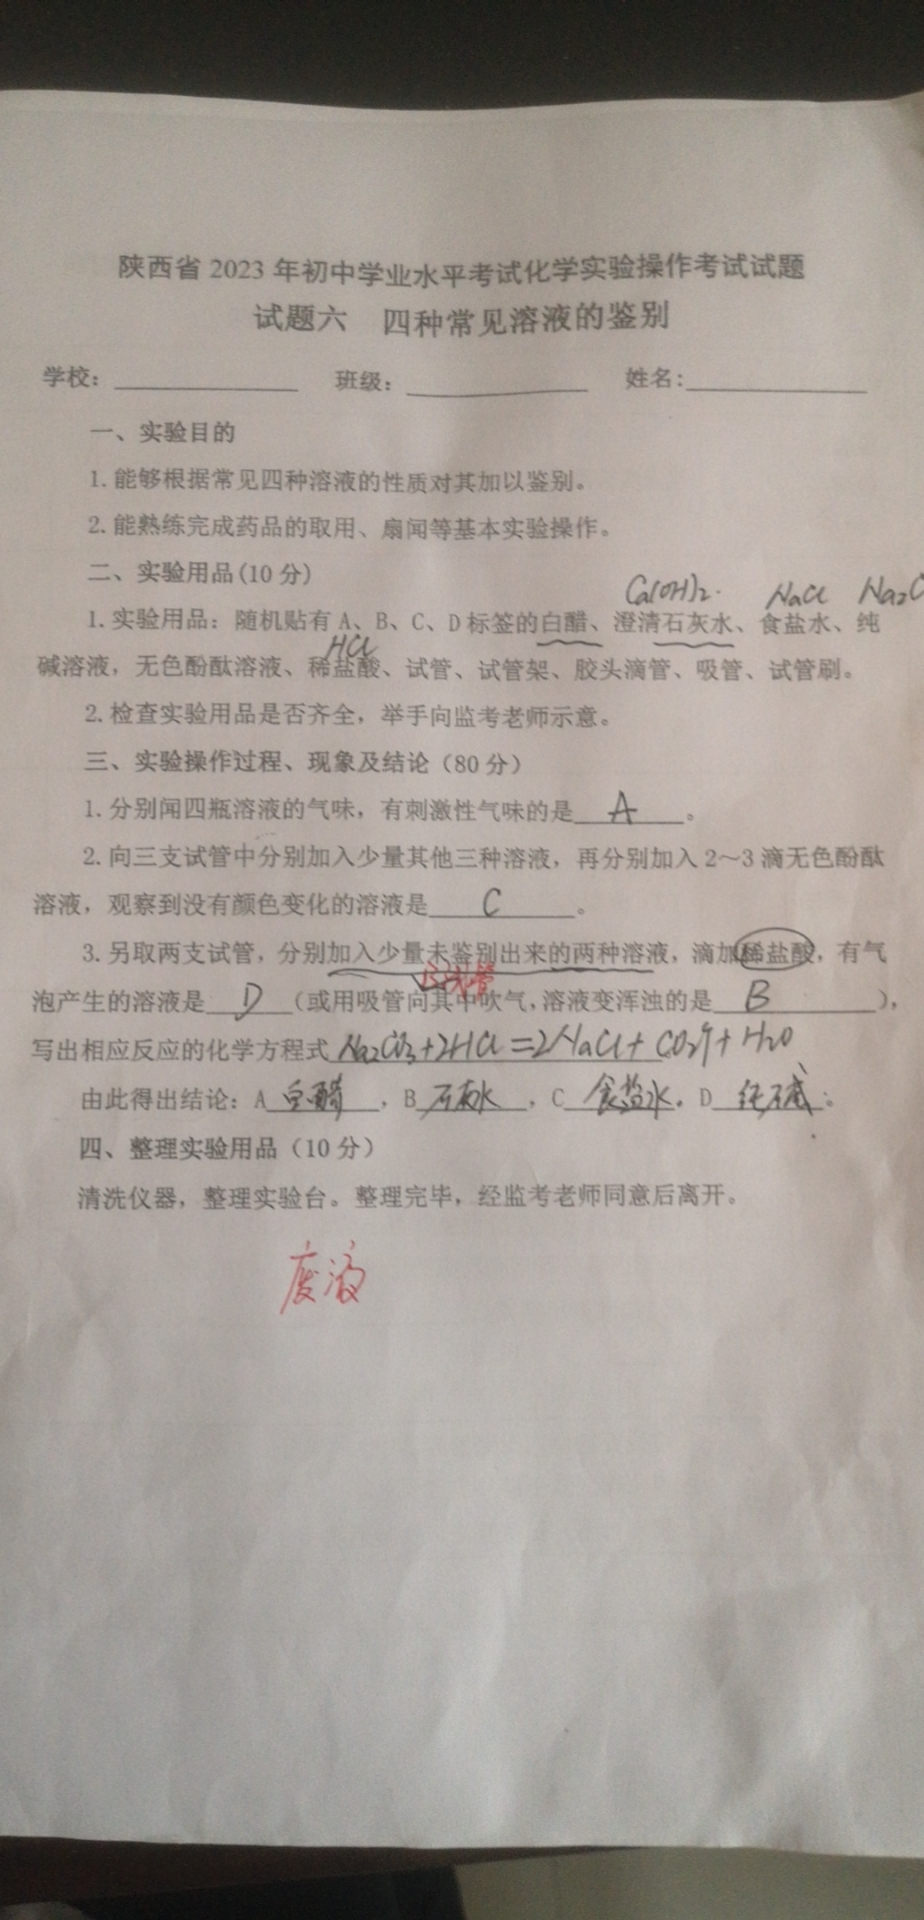 陕西省2023年初中学业水平考试化学实验操作考试试题
试题六 四种常见溶液的鉴别
学校：____ 班级：____ 姓名：____
一、实验目的
1.能够根据常见四种溶液的性质对其加以鉴别。
2.能熟练完成药品的取用、扇闻等基本实验操作。
二、实验用品(10分)
Ca(OH)₂. NaCl Na₂C
1.实验用品：随机贴有A、B、C、D标签的白醋、澄清石灰水、食盐水、纯
HCl
碱溶液，无色酚酞溶液、稀盐酸、试管、试管架、胶头滴管、吸管、试管刷。
2.检查实验用品是否齐全，举手向监考老师示意。
三、实验操作过程、现象及结论（80分）
1.分别闻四瓶溶液的气味，有刺激性气味的是 A 。
2.向三支试管中分别加入少量其他三种溶液，再分别加入2～3滴无色酚酞
溶液，观察到没有颜色变化的溶液是 C 。
3.另取两支试管，分别加入少量未鉴别出来的两种溶液，滴加稀盐酸，有气
试管
泡产生的溶液是 D （或用吸管向其中吹气，溶液变浑浊的是 B ），
写出相应反应的化学方程式 Na₂CO₃+2HCl=2NaCl+CO₂↑+H₂O
由此得出结论：A 白醋 ，B 石灰水 ，C 食盐水 。D 纯碱 。
四、整理实验用品（10分）
清洗仪器，整理实验台。整理完毕，经监考老师同意后离开。
废液